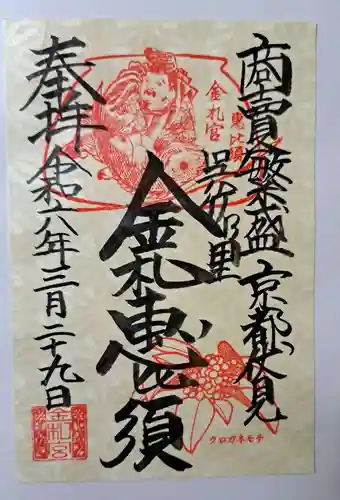 商賣繁盛 京都伏見
金札宮
恵比須
呉竹乃里
金札恵比須
奉拝
令和六年三月二十九日
金札宮
クロガネモチ